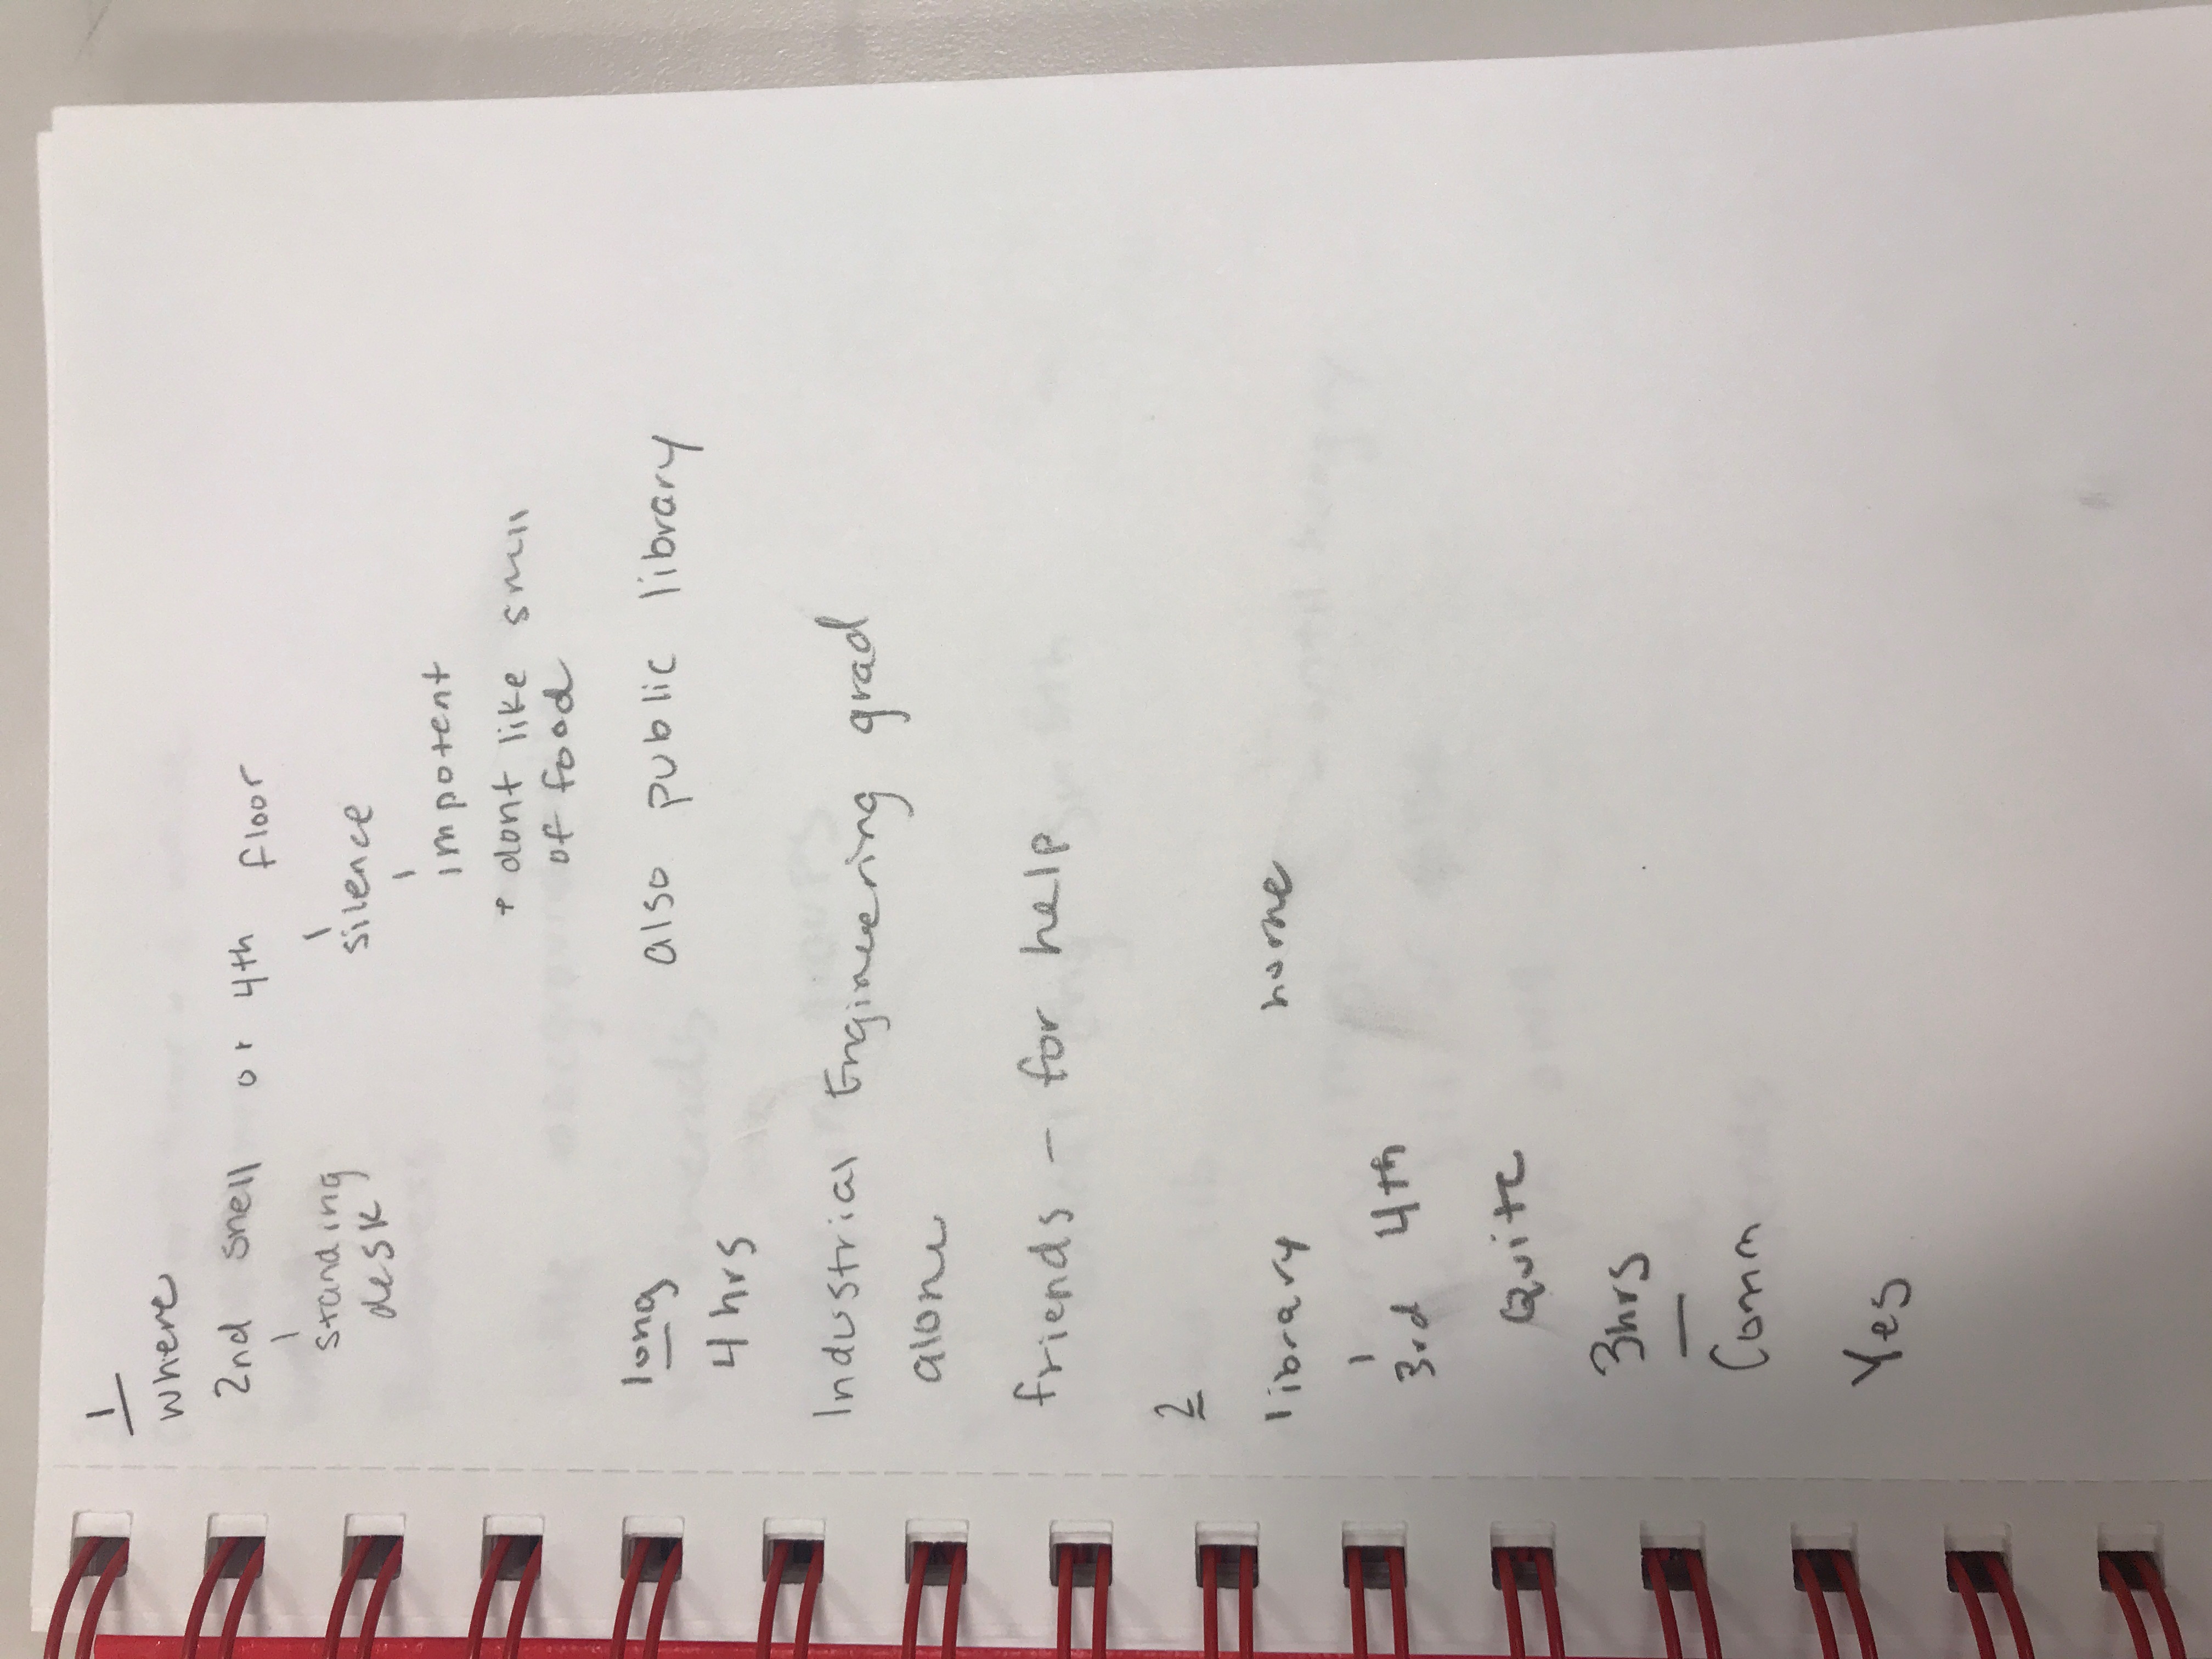 1
where
2nd snell or 4th floor
standing
desk
silence
impotent
+ dont like smell
of food
long
also public library
4 hrs
Industrial Engineering grad
alone
friends - for help
2
library home
3rd 4th
Quite
3hrs
Comm
Yes